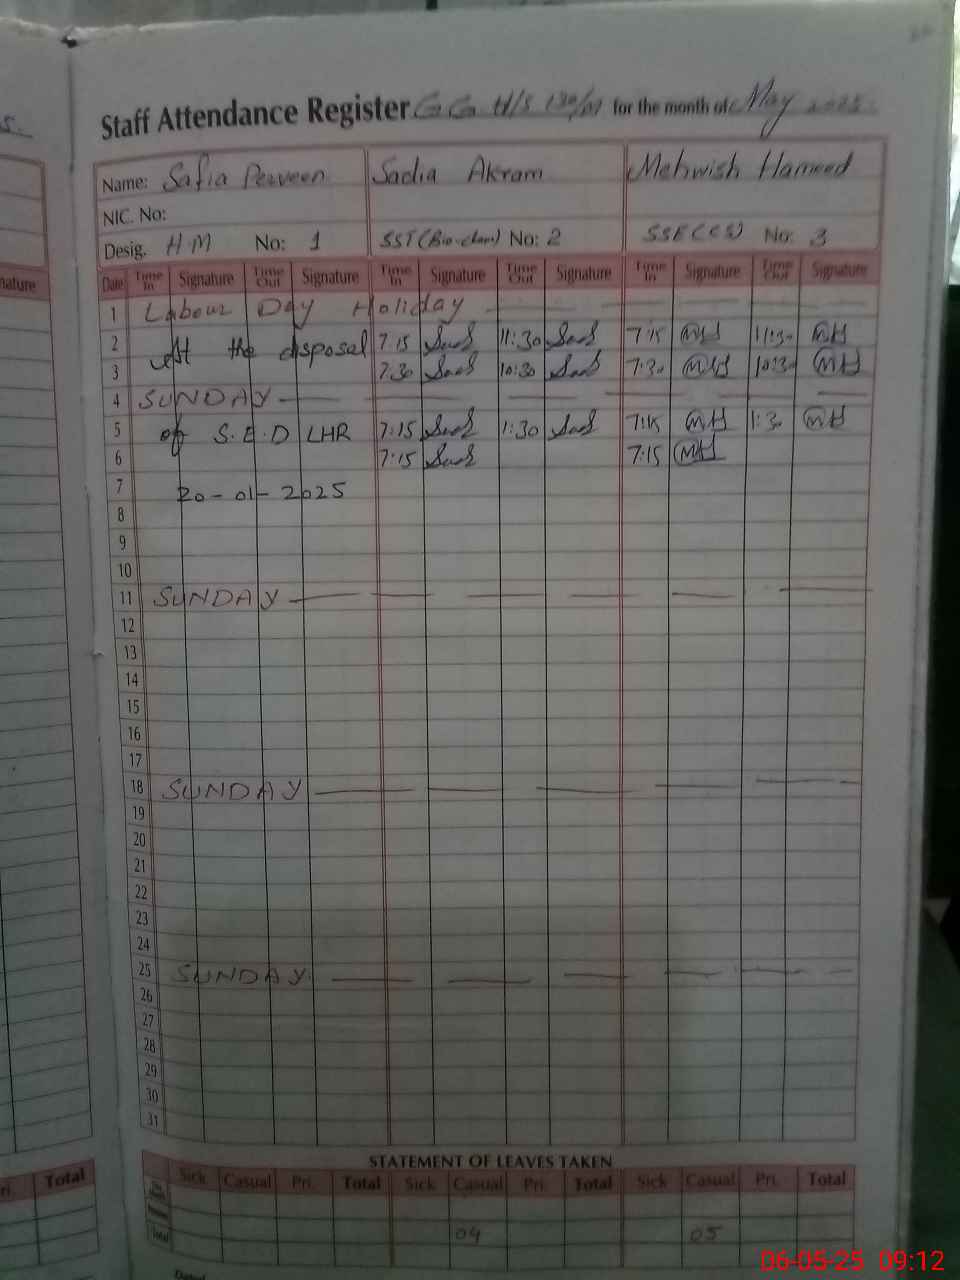 Staff Attendance Register G G H/S 130/ for the month of May 2025.
Name: Safia Perveen Sadia Akram Mehwish Hameed
NIC. No:
Desig. H.M No: 1 SST (Bio-chem) No: 2 SSE(CS) No: 3
nature Date Time In Signature Time Out Signature Time In Signature Time Out Signature Time In Signature Time Out Signature
1 Labour Day Holiday
2 At the disposal 7:15 11:30 7:15 MH 11:30 MH
3 7:30 10:30 7:30 MH 10:30 MH
4 SUNDAY
5 of S.E.D LHR 7:15 1:30 7:15 MH 1:30 MH
6 7:15 7:15 MH
7 20-01-2025
8
9
10
11 SUNDAY
12
13
14
15
16
17
18 SUNDAY
19
20
21
22
23
24
25 SUNDAY
26
27
28
29
30
31
STATEMENT OF LEAVES TAKEN
ri. Total Sick Casual Pri. Total Sick Casual Pri. Total Sick Casual Pri. Total
Total 04 05
06-05-25 09:12